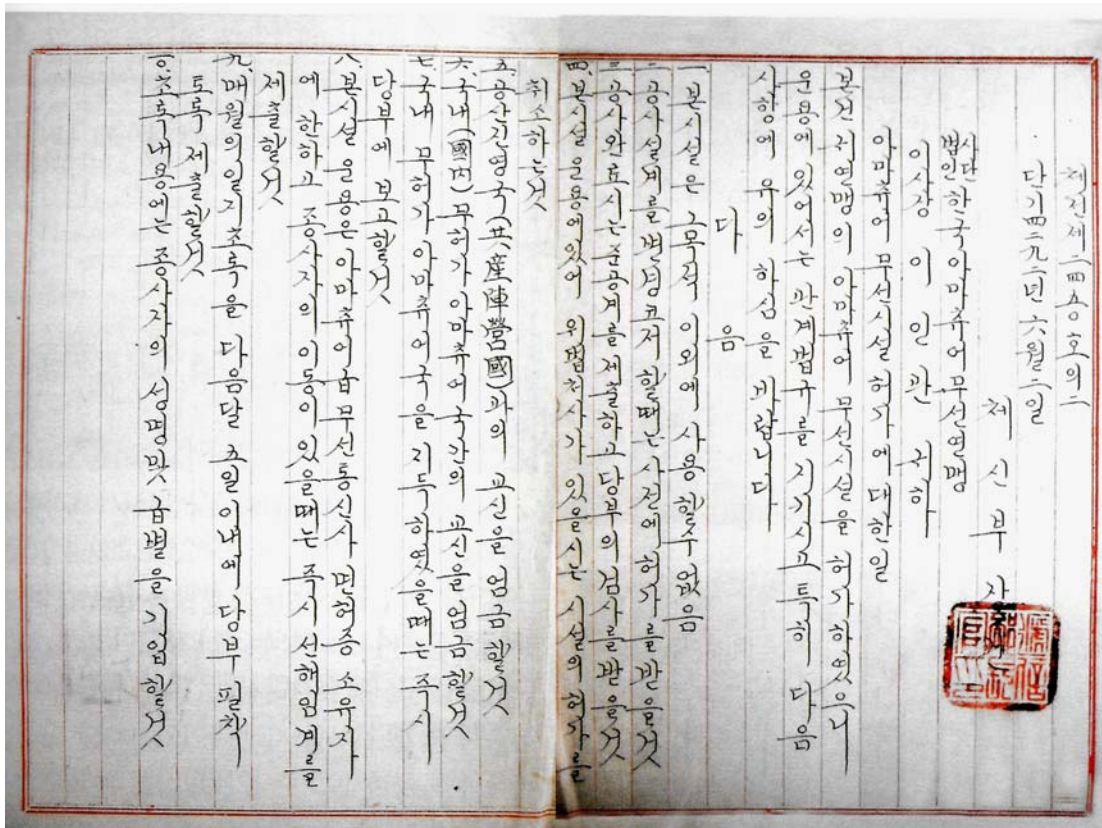 체전제二四五0호의二
단기四二九二년六월二일
체신부 사
사단법인한국아마츄어무선연맹
이사장 이인관 귀하
아마츄어 무선시설 허가에대한일
본건 저연맹의 아마츄어 무선시설을 허가하였으니
운용에 있어서는 관계법규를 지키시고 특히 다음
사항에 유의 하심을 바랍니다
다 음
一. 본시설은 목적 이외에 사용할수 없음
二. 공사설계를 변경코저 할때는 사전에 허가를 받을것
三. 공사완료시는 준공계를 제출하고 당부의 검사를 받을것
四. 본시설운용에있어 위법천사가 있을시는 시설의 허가를
취소하는것
五. 공산진영국(共産陣營國)과의 교신을 엄금할것
六. 국내(國內) 무허가 아마츄어 국간의 교신을 엄금할것
七. 국내 무허가 아마츄어국을 지득하였을때는 즉시
당부에 보고할것
八. 본시설 운용은 아마츄어급 무선통신사 면허증 소유자
에 한하고 종사자의 이동이 있을때는 즉시 선해임계를
제출할것
九. 매월의일지초록을 다음달 五일 이내에 당부 필착
토록 제출할것
一0. 초록내용에는 종사자의 성명및 급별을 기입할것